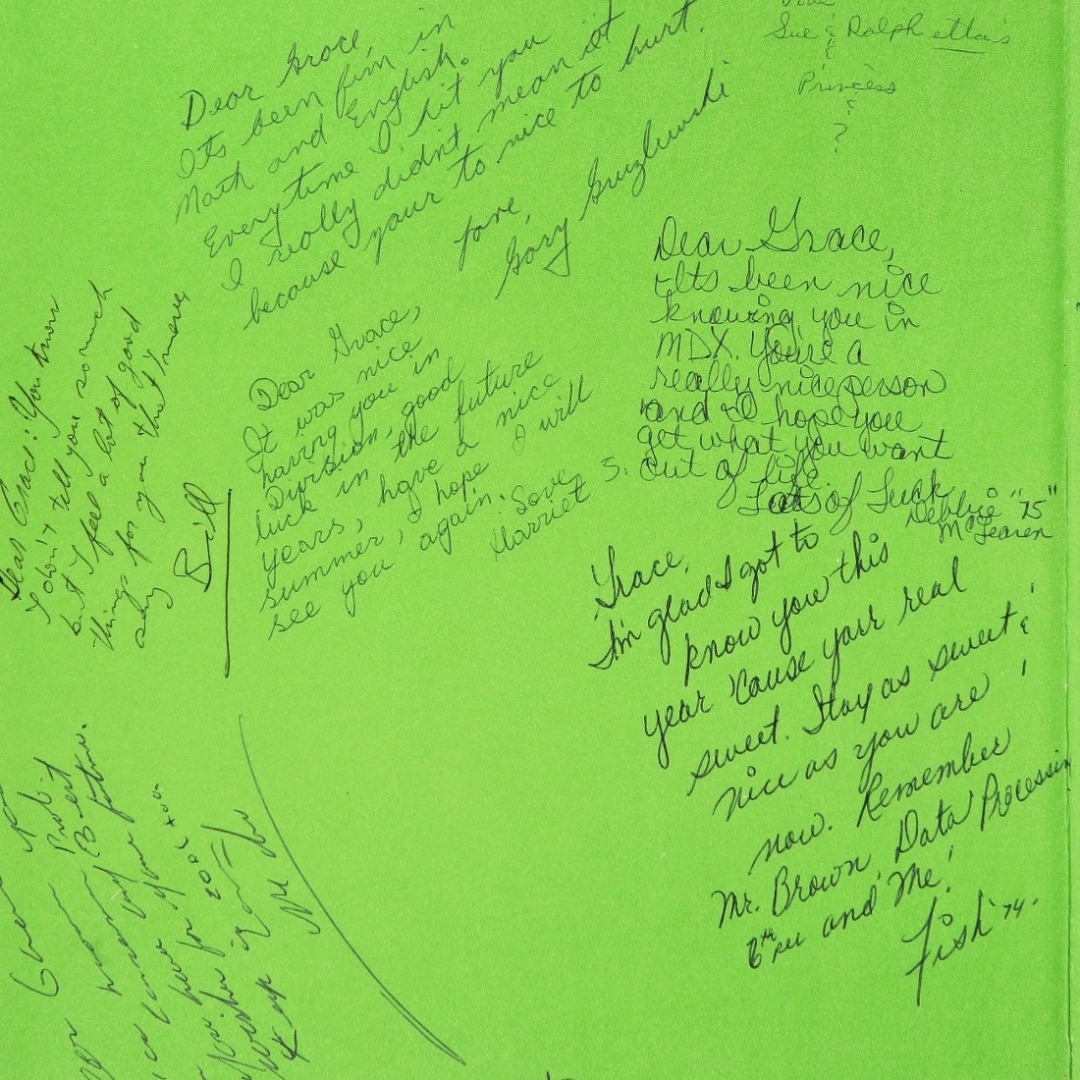 Dear Grace,
Its been fun in
Math and English.
Everytime I hit you
I really didn't mean it
because your to nice to hurt.
love,
Gary
Sue & Ralph etta's
&
Princess
&
?
Dear Grace,
Its been nice
knowing you in
MDX. You're a
really nice person
and I hope you
get what you want
out of life.
Lots of Luck
Debbie "75"
McGearen
Dear Grace,
It was nice
having you in
Division, good
luck in the future
years, have a nice
summer, I hope I will
see you again.
Love
Harriet S.
Dear Grace: You know
I don't tell you so much
but I feel a lot of good
things for you that I never
say
Bill
Grace,
I'm glad I got to
know you this
year 'cause your real
sweet. Stay as sweet &
nice as you are
now. Remember
Mr. Brown, Data Processin
6th per and Me!
Fish '74.
Best
your future.